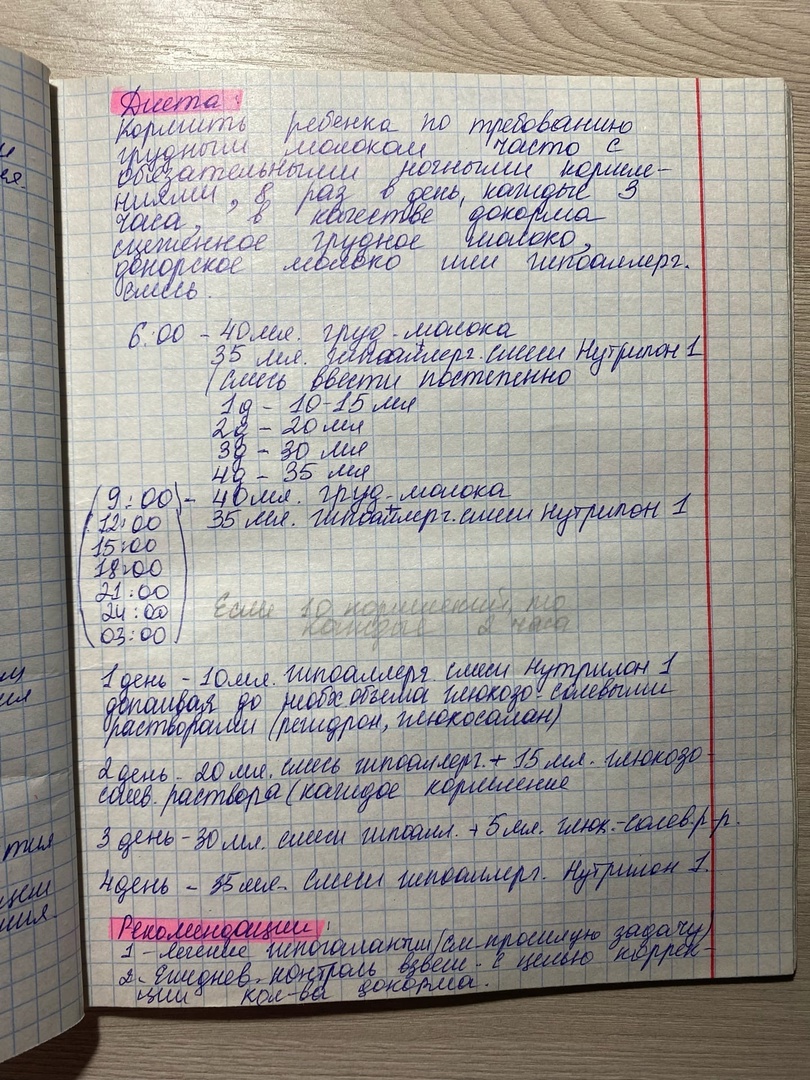 Диета:
Кормить ребенка по требованию
грудным молоком часто с
обязательными ночными кормле-
ниями, 8 раз в день, каждые 3
часа, в качестве докорма
сцеженное грудное молоко,
донорское молоко или гипоаллерг.
смесь.
6:00 - 40 мл. груд. молока
35 мл. гипоаллерг. смеси Нутрилон 1
(смесь ввести постепенно
1д - 10-15 мл
2д - 20 мл
3д - 30 мл
4д - 35 мл
(9:00) - 40 мл. груд. молока
12:00 35 мл. гипоаллерг. смеси Нутрилон 1
15:00
18:00
21:00
24:00 Если 10 кормлений, то
03:00 каждые 2 часа
1 день - 10 мл. гипоаллерг. смеси Нутрилон 1
допаивая до необх. объема глюкозо солевыми
растворами (регидрон, глюкосалан)
2 день - 20 мл. смесь гипоаллерг. + 15 мл. глюкозо-
солев. раствора (каждое кормление
3 день - 30 мл. смеси гипоалл. + 5 мл. глюк.-солев. р-р.
4 день - 35 мл. смеси гипоаллерг. Нутрилон 1.
Рекомендации:
1 - лечение гипогалактии (см. прошлую задачу)
2. Ежеднев. контроль взвеш. с целью коррек-
ции кол-ва докорма.